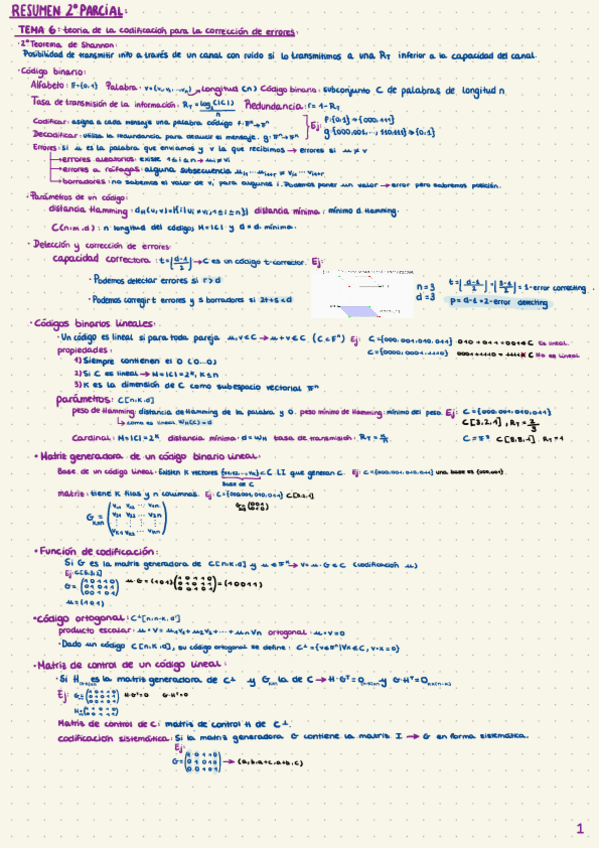 RESUMEN 2º PARCIAL:
TEMA 6: teoría de la codificación para la corrección de errores:
· 2º Teorema de Shannon:
Posibilidad de transmitir info a través de un canal con ruido si lo transmitimos a una R_T inferior a la capacidad del canal.
· Código binario:
Alfabeto: F={0,1} Palabra: Longitud (n) Código binario: subconjunto C de palabras de longitud n
Tasa de transmisión de la información: R_T = log₂|C|/n Redundancia: r = 1 - R_T
Codificar: asigna a cada mensaje una palabra código
Decodificar: utiliza la redundancia para deducir el mensaje.
Ej:
Errores: si u es la palabra que enviamos y v la que recibimos → errores si u ≠ v
→ errores aleatorios: existe 1≤i≤n → uᵢ≠vᵢ
→ errores a ráfagas: alguna subsecuencia
→ borradores: no sabemos el valor de vᵢ para algunos i. Podemos poner un valor → error pero sabremos posición.
· Parámetros de un código:
distancia Hamming: distancia mínima: mínimo d. Hamming.
C(n,m,d): n longitud del código, M=|C| y d=d. mínima.
· Detección y corrección de errores:
capacidad correctora: t=⌊(d-1)/2⌋ → C es un código t-corrector. Ej:
· Podemos detectar errores si r>d
· Podemos corregir t errores y s borradores si 2t+s<d
n=3
d=3
t=⌊(d-1)/2⌋=⌊(3-1)/2⌋=1-error correcting.
p=d-1=2-error detecting
· Códigos binarios lineales:
· Un código es lineal si para toda pareja u,v∈C → u+v∈C (C⊆Fⁿ) Ej: C={000,001,010,011} 010+011=001∈C Es lineal
C={0000,0001,1110} 0001+1110=1111∉C No es lineal
propiedades:
1) Siempre contienen el 0 (0...0)
2) Si C es lineal → M=|C|=2ᴷ, K≤n
3) K es la dimensión de C como subespacio vectorial Fⁿ
parámetros: C[n,k,d]
peso de Hamming: distancia de Hamming de la palabra y 0. peso mínimo de Hamming: mínimo del peso. Ej: C={000,001,010,011}
C[3,2,1], R_T=2/3
Cardinal: M=|C|=2ᴷ distancia mínima: d=W_H tasa de transmisión: R_T=K/n
C=F⁸ C[8,8,1], R_T=1
· Matriz generadora de un código binario lineal:
Base de un código lineal: Existen K vectores {v₁,v₂,...,vₖ}∈C LI que generan C. Ej: C={000,001,010,011} una base es {010,001}
base de C
matriz: tiene K filas y n columnas. Ej: C={000,001,010,011} C[3,2,1]
· Función de codificación:
Si G es la matriz generadora de C[n,k,d] y u∈Fᴷ → v=u·G∈C (codificación u)
Ej: C[5,3,2]
u=(101)
· Código ortogonal: C⊥[n,n-k,d']
producto escalar: u·v=u₁v₁+u₂v₂+···+uₙvₙ ortogonal: u·v=0
· Dado un código C[n,k,d], su código ortogonal se define: C⊥={v∈Fⁿ|∀x∈C, v·x=0}
· Matriz de control de un código lineal:
· Si H es la matriz generadora de C⊥ y G la de C → H·Gᵀ=0 y G·Hᵀ=0
Ej: H·Gᵀ=0 G·Hᵀ=0
Matriz de control de C: matriz de control H de C⊥.
codificación sistemática: Si la matriz generadora G contiene la matriz I → G en forma sistemática.
Ej:
→ (a,b,a+c,a+b,c)
1